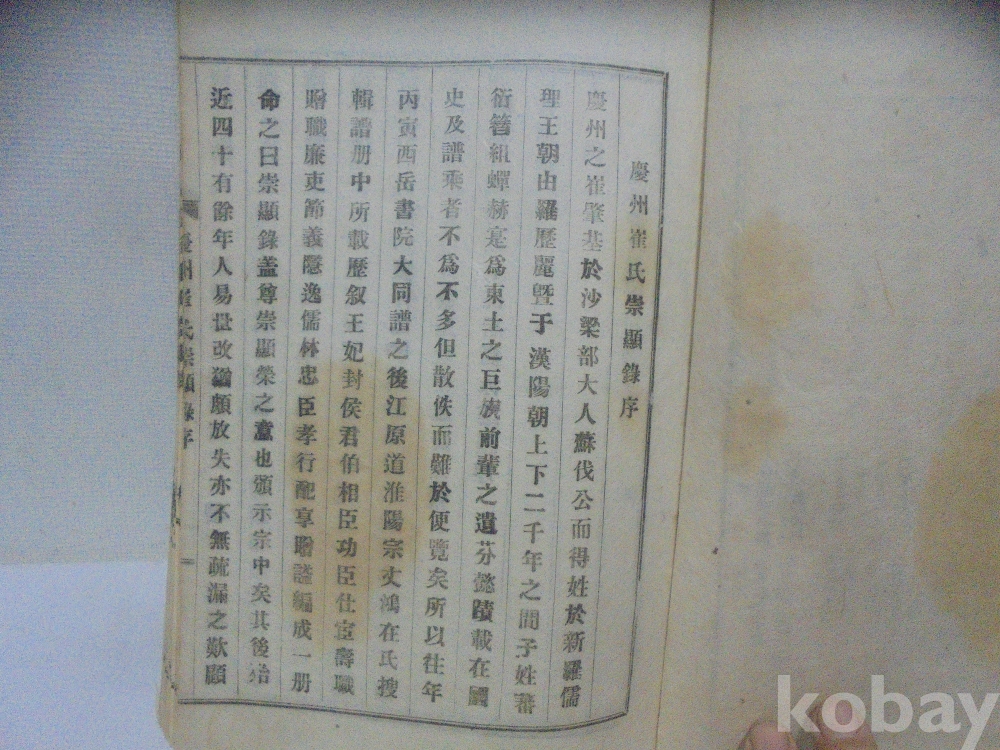 慶州崔氏崇顯錄序
慶州之崔肇基於沙梁部大人蘇伐公而得姓於新羅儒
理王朝由羅歷麗曁于漢陽朝上下二千年之間子姓蕃
衍簪組蟬赫寔爲東土之巨族前輩之遺芬懿蹟載在國
史及譜乘者不爲不多但散佚而難於便覽矣所以往年
丙寅西岳書院大同譜之後江原道淮陽宗丈鴻在氏搜
輯譜册中所載歷叙王妃封侯君伯相臣功臣仕宦壽職
贈職廉吏節義隱逸儒林忠臣孝行配享贈謚編成一册
命之曰崇顯錄盖尊崇顯榮之意也頒示宗中矣其後殆
近四十有餘年人易世改猶頗放失亦不無疏漏之歎顧
慶州崔氏崇顯錄序
kobay